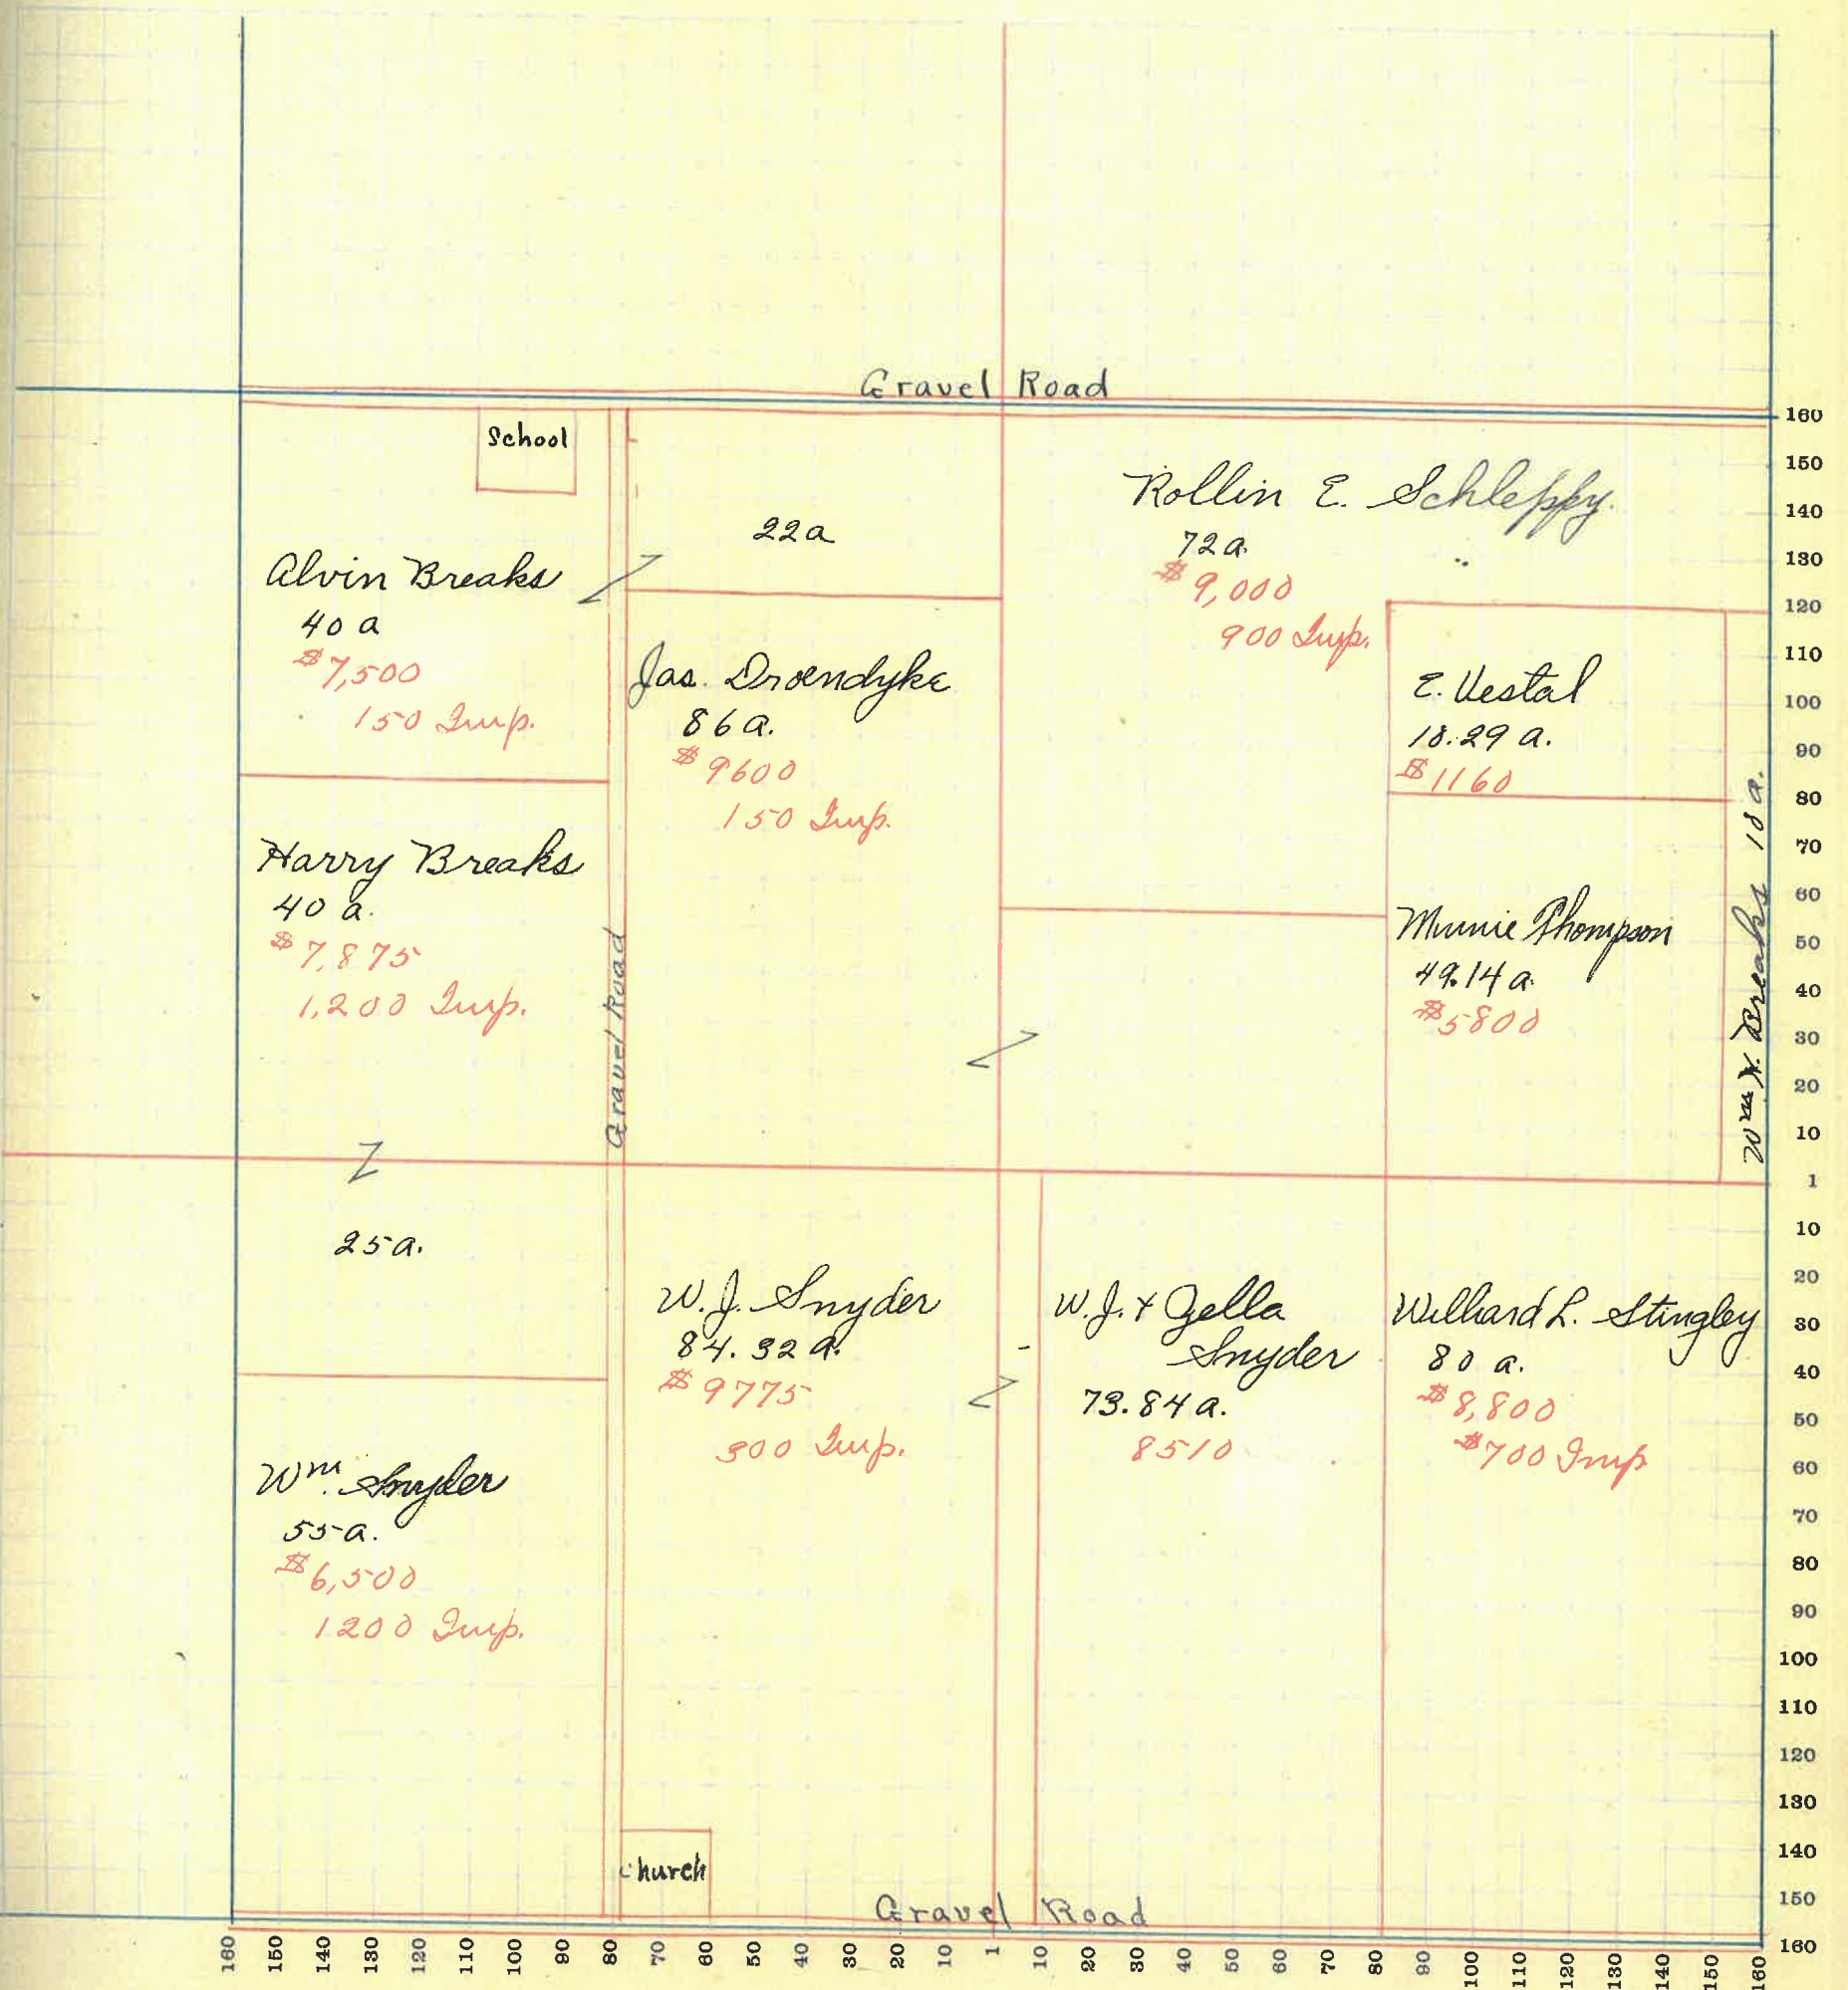 Gravel Road
School
22a
Rollin E. Schleppy.
72a.
$9,000
900 Imp.
Alvin Breaks
40 a
$7,500
150 Imp.
Jas. Droendyke
86 a.
$9600
150 Imp.
E. Vestal
18.29 a.
$1160
Harry Breaks
40 a.
$7,875
1,200 Imp.
Gravel Road
Minnie Thompson
49.14 a.
$5800
Wm H. Breaks 18 a.
25 a.
W. J. Snyder
84.32 a.
$9775
300 Imp.
W. J. & Zella
Snyder
73.84 a.
8510
Willard L. Stingley
80 a.
$8,800
$700 Imp
Wm. Snyder
55 a.
$6,500
1200 Imp.
Church
Gravel Road
160
150
140
130
120
110
100
90
80
70
60
50
40
30
20
10
1
10
20
30
40
50
60
70
80
90
100
110
120
130
140
150
160
160 150 140 130 120 110 100 90 80 70 60 50 40 30 20 10 1 10 20 30 40 50 60 70 80 90 100 110 120 130 140 150 160